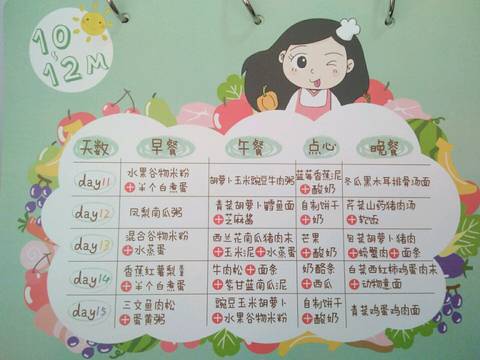 10
12M
天数 早餐 午餐 点心 晚餐
day11
水果谷物米粉
+半个白煮蛋
胡萝卜玉米豌豆牛肉粥
蓝莓香蕉泥
+酸奶
冬瓜黑木耳排骨汤面
day12
凤梨南瓜粥
青菜胡萝卜鳕鱼面
+芝麻酱
自制饼干
+奶
芹菜山药猪肉汤
+软饭
day13
混合谷物米粉
+水蒸蛋
西兰花南瓜猪肉末
+玉米泥+水蒸蛋
芒果
+酸奶
胡萝卜猪肉
+螃蟹肉+面条
day14
香蕉红薯梨
+半个白煮蛋
牛肉松+面条
+紫甘蓝南瓜泥
奶酪条
+西瓜
白菜西红柿鸡蛋肉末
+动物意面
day15
三文鱼肉松
+蛋黄粥
豌豆玉米胡萝卜
+水果谷物米粉
自制饼干
+酸奶
青菜鸡蛋鸡肉面